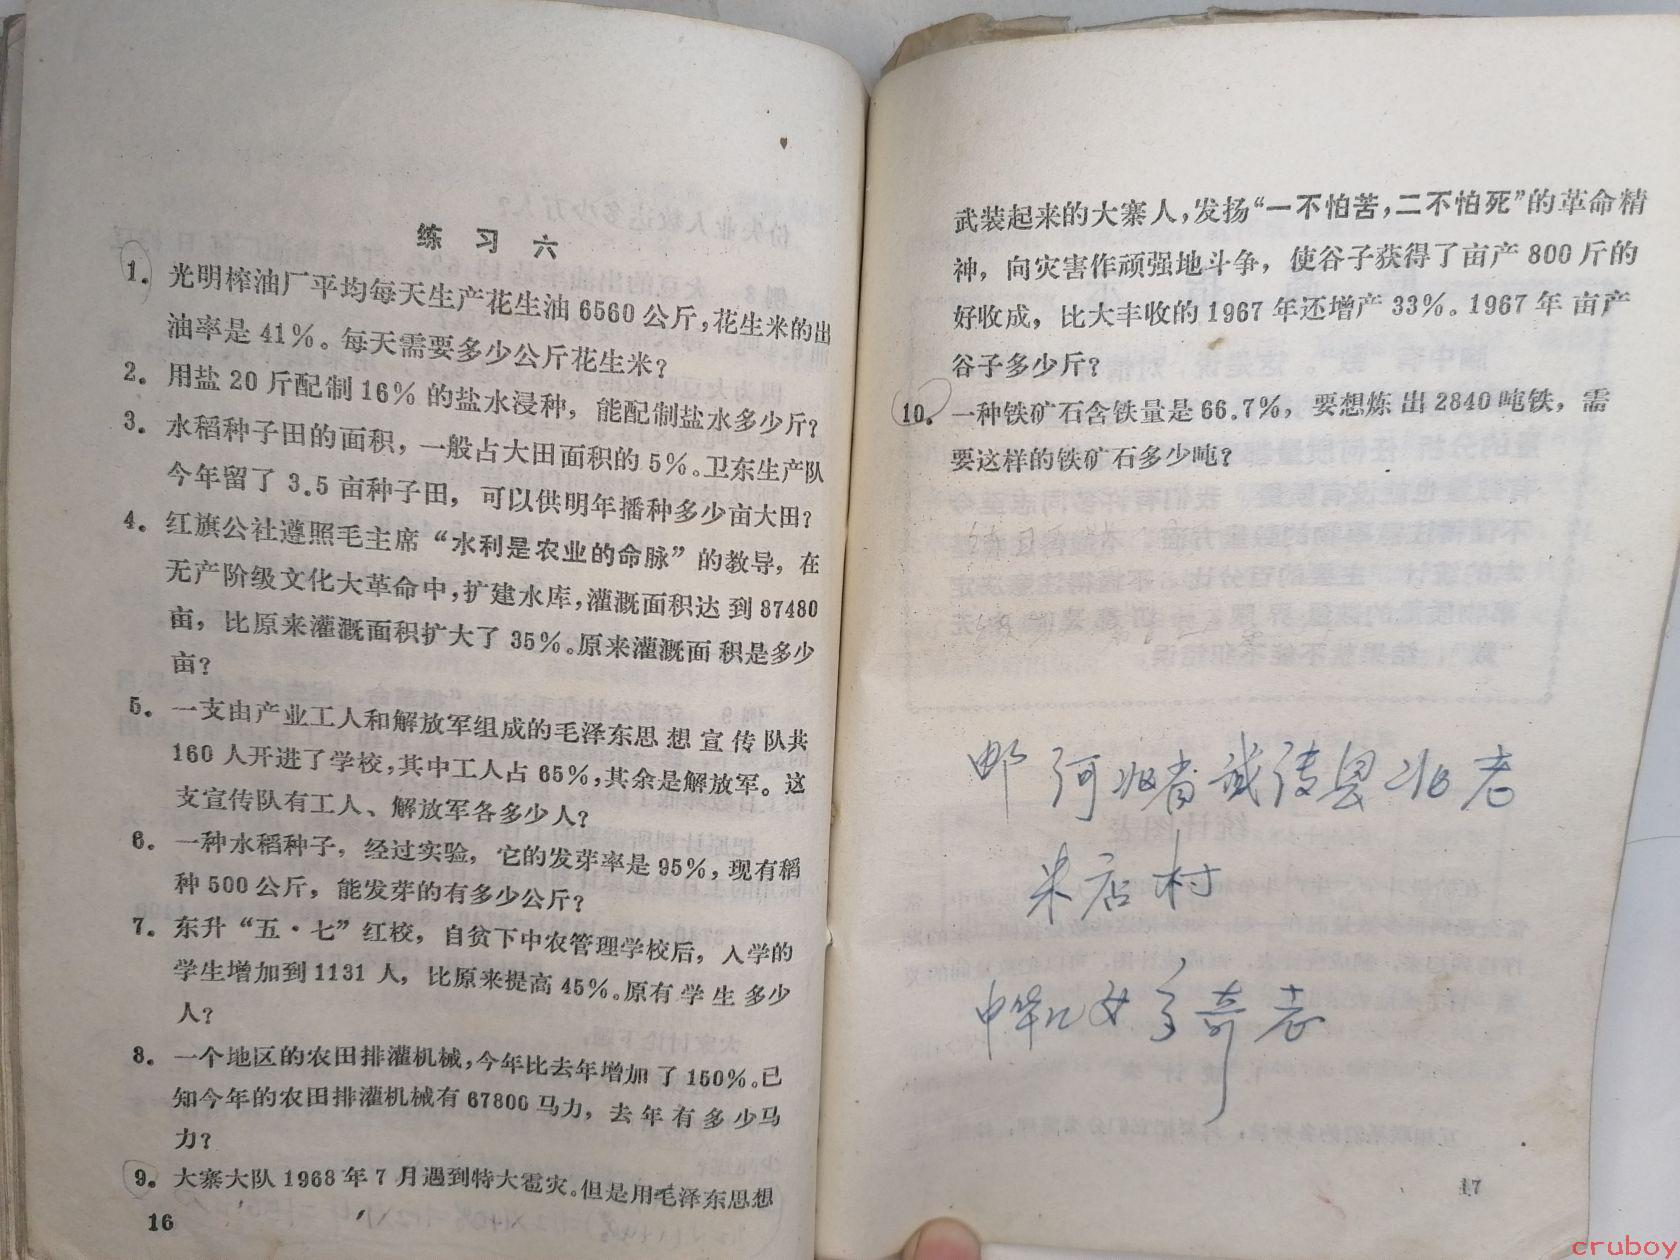 练习六
1. 光明榨油厂平均每天生产花生油6560公斤，花生米的出
油率是41%。每天需要多少公斤花生米？
2. 用盐20斤配制16%的盐水浸种，能配制盐水多少斤？
3. 水稻种子田的面积，一般占大田面积的5%。卫东生产队
今年留了3.5亩种子田，可以供明年播种多少亩大田？
4. 红旗公社遵照毛主席“水利是农业的命脉”的教导，在
无产阶级文化大革命中，扩建水库，灌溉面积达到87480
亩，比原来灌溉面积扩大了35%。原来灌溉面积是多少
亩？
5. 一支由产业工人和解放军组成的毛泽东思想宣传队共
160人开进了学校，其中工人占65%，其余是解放军。这
支宣传队有工人、解放军各多少人？
6. 一种水稻种子，经过实验，它的发芽率是95%，现有稻
种500公斤，能发芽的有多少公斤？
7. 东升“五·七”红校，自贫下中农管理学校后，入学的
学生增加到1131人，比原来提高45%。原有学生多少
人？
8. 一个地区的农田排灌机械，今年比去年增加了150%。已
知今年的农田排灌机械有67800马力，去年有多少马
力？
9. 大寨大队1968年7月遇到特大雹灾。但是用毛泽东思想
16
武装起来的大寨人，发扬“一不怕苦，二不怕死”的革命精
神，向灾害作顽强地斗争，使谷子获得了亩产800斤的
好收成，比大丰收的1967年还增产33%。1967年亩产
谷子多少斤？
10. 一种铁矿石含铁量是66.7%，要想炼出2840吨铁，需
要这样的铁矿石多少吨？
河北省
米店村
17
cruboy